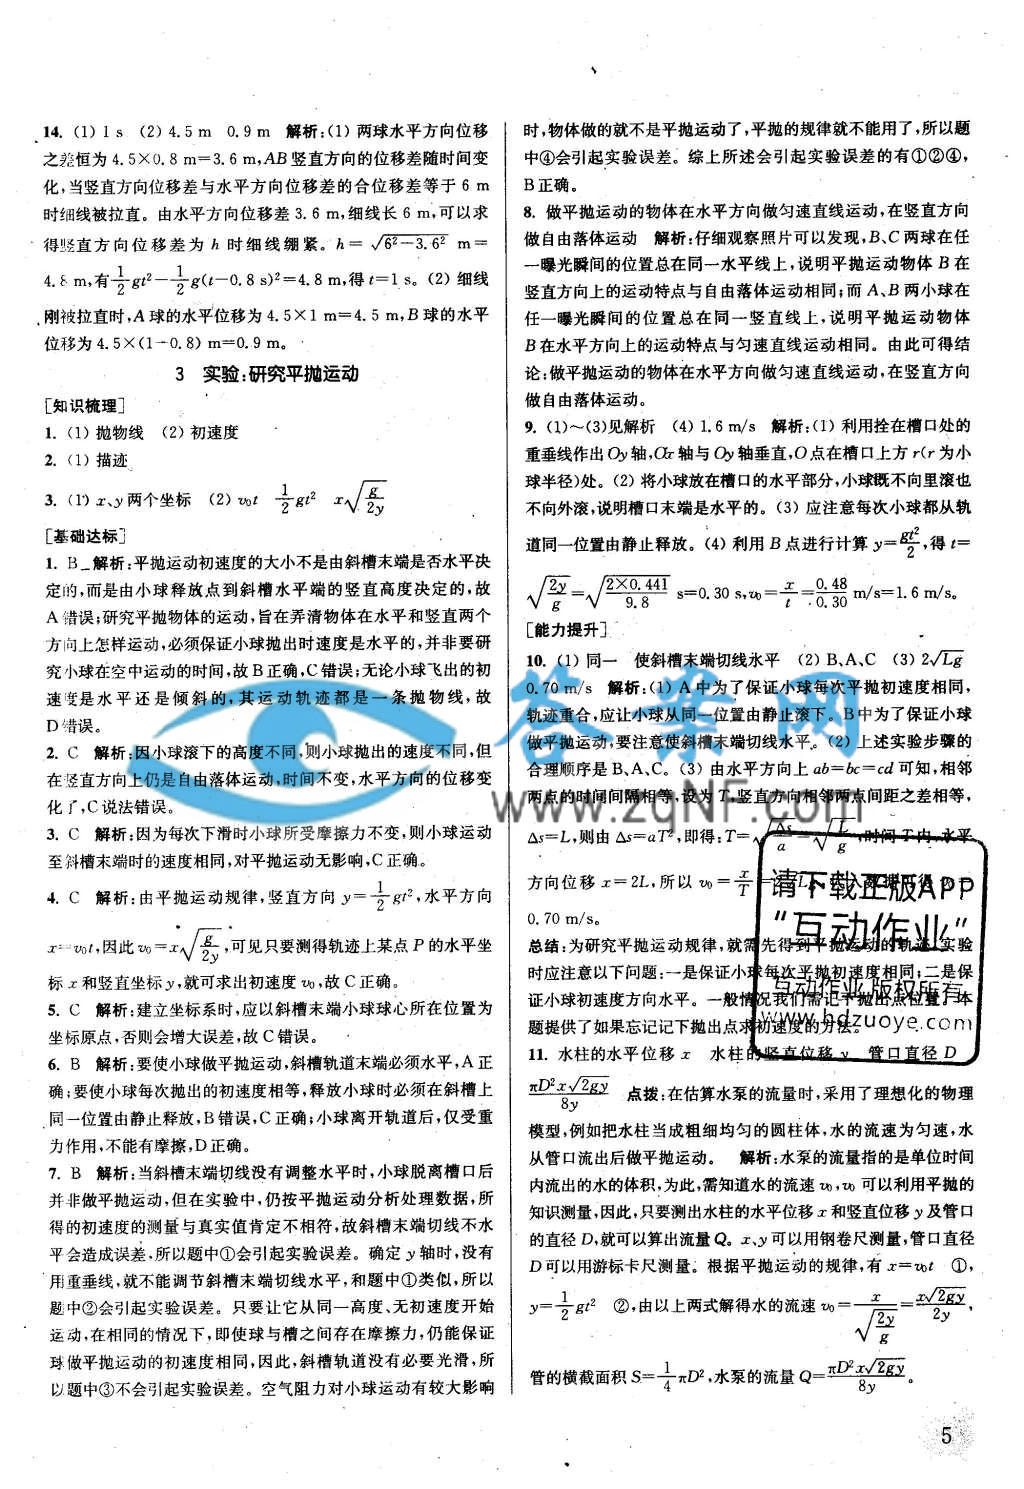 14. (1) 1 s (2) 4.5 m 0.9 m 解析:(1) 两球水平方向位移
之差恒为 4.5×0.8 m=3.6 m,AB 竖直方向的位移差随时间变
化,当竖直方向位移差与水平方向位移差的合位移差等于 6 m
时细线被拉直。由水平方向位移差 3.6 m,细线长 6 m,可以求
得竖直方向位移差为 h 时细线绷紧。h = √(6²−3.6²) m=
4.8 m,有 1/2 gt²−1/2 g(t−0.8 s)²=4.8 m,得 t=1 s。(2) 细线
刚被拉直时,A 球的水平位移为 4.5×1 m=4.5 m,B 球的水平
位移为 4.5×(1−0.8) m=0.9 m。
3 实验:研究平抛运动
[知识梳理]
1. (1) 抛物线 (2) 初速度
2. (1) 描迹
3. (1) x、y 两个坐标 (2) v₀t 1/2 gt² x√(g/2y)
[基础达标]
1. B 解析:平抛运动初速度的大小不是由斜槽末端是否水平决
定的,而是由小球释放点到斜槽水平端的竖直高度决定的,故
A 错误;研究平抛物体的运动,旨在弄清物体在水平和竖直两个
方向上怎样运动,必须保证小球抛出时速度是水平的,并非要研
究小球在空中运动的时间,故 B 正确,C 错误;无论小球飞出的初
速度是水平还是倾斜的,其运动轨迹都是一条抛物线,故
D 错误。
2. C 解析:因小球滚下的高度不同,则小球抛出的速度不同,但
在竖直方向上仍是自由落体运动,时间不变,水平方向的位移变
化了,C 说法错误。
3. C 解析:因为每次下滑时小球所受摩擦力不变,则小球运动
至斜槽末端时的速度相同,对平抛运动无影响,C 正确。
4. C 解析:由平抛运动规律,竖直方向 y=1/2 gt²,水平方向
x=v₀t,因此 v₀=x√(g/2y),可见只要测得轨迹上某点 P 的水平坐
标 x 和竖直坐标 y,就可求出初速度 v₀,故 C 正确。
5. C 解析:建立坐标系时,应以斜槽末端小球球心所在位置为
坐标原点,否则会增大误差,故 C 错误。
6. B 解析:要使小球做平抛运动,斜槽轨道末端必须水平,A 正
确;要使小球每次抛出的初速度相等,释放小球时必须在斜槽上
同一位置由静止释放,B 错误,C 正确;小球离开轨道后,仅受重
力作用,不能有摩擦,D 正确。
7. B 解析:当斜槽末端切线没有调整水平时,小球脱离槽口后
并非做平抛运动,但在实验中,仍按平抛运动分析处理数据,所
得的初速度的测量与真实值肯定不相符,故斜槽末端切线不水
平会造成误差,所以题中①会引起实验误差。确定 y 轴时,没有
用重垂线,就不能调节斜槽末端切线水平,和题中①类似,所以
题中②会引起实验误差。只要让它从同一高度、无初速度开始
运动,在相同的情况下,即使球与槽之间存在摩擦力,仍能保证
球做平抛运动的初速度相同,因此,斜槽轨道没有必要光滑,所
以题中③不会引起实验误差。空气阻力对小球运动有较大影响
时,物体做的就不是平抛运动了,平抛的规律就不能用了,所以题
中④会引起实验误差。综上所述会引起实验误差的有①②④,
B 正确。
8. 做平抛运动的物体在水平方向做匀速直线运动,在竖直方向
做自由落体运动 解析:仔细观察照片可以发现,B、C 两球在任
一曝光瞬间的位置总在同一水平线上,说明平抛运动物体 B 在
竖直方向上的运动特点与自由落体运动相同;而 A、B 两小球在
任一曝光瞬间的位置总在同一竖直线上,说明平抛运动物体
B 在水平方向上的运动特点与匀速直线运动相同。由此可得结
论:做平抛运动的物体在水平方向做匀速直线运动,在竖直方向
做自由落体运动。
9. (1)~(3)见解析 (4) 1.6 m/s 解析:(1) 利用拴在槽口处的
重垂线作出 Oy 轴,Ox 轴与 Oy 轴垂直,O 点在槽口上方 r(r 为小
球半径)处。(2) 将小球放在槽口的水平部分,小球既不向里滚也
不向外滚,说明槽口末端是水平的。(3) 应注意每次小球都从轨
道同一位置由静止释放。(4) 利用 B 点进行计算 y=gt²/2,得 t=
√(2y/g)=√(2×0.441/9.8) s=0.30 s,v₀=x/t=0.48/0.30 m/s=1.6 m/s。
[能力提升]
10. (1) 同一 使斜槽末端切线水平 (2) B、A、C (3) 2√(Lg)
0.70 m/s 解析:(1) A 中为了保证小球每次平抛初速度相同,
轨迹重合,应让小球从同一位置由静止滚下。B 中为了保证小球
做平抛运动,要注意使斜槽末端切线水平。(2) 上述实验步骤的
合理顺序是 B、A、C。(3) 由水平方向上 ab=bc=cd 可知,相邻
两点的时间间隔相等,设为 T,竖直方向相邻两点间距之差相等,
Δs=L,则由 Δs=aT²,即得:T=√(Δs/a)=√(L/g),时间 T 内,水平
方向位移 x=2L,所以 v₀=x/T=
0.70 m/s。
总结:为研究平抛运动规律,就需先得到平抛运动的轨迹,实验
时应注意以下问题:一是保证小球每次平抛初速度相同;二是保
证小球初速度方向水平。一般情况我们需记平抛出点位置,本
题提供了如果忘记记下抛出点求初速度的方法。
11. 水柱的水平位移 x 水柱的竖直位移 y 管口直径 D
πD²x√(2gy)/8y 点拨:在估算水泵的流量时,采用了理想化的物理
模型,例如把水柱当成粗细均匀的圆柱体,水的流速为匀速,水
从管口流出后做平抛运动。 解析:水泵的流量指的是单位时间
内流出的水的体积,为此,需知道水的流速 v₀,v₀ 可以利用平抛的
知识测量,因此,只要测出水柱的水平位移 x 和竖直位移 y 及管口
的直径 D,就可以算出流量 Q。x、y 可以用钢卷尺测量,管口直径
D 可以用游标卡尺测量。根据平抛运动的规律,有 x=v₀t ①,
y=1/2 gt² ②,由以上两式解得水的流速 v₀=x/√(2y/g)=x√(2gy)/2y,
管的横截面积 S=1/4 πD²,水泵的流量 Q=πD²x√(2gy)/8y。
5
答案网
www.zqNF.com
请下载正版APP
“互动作业”
互动作业,版权所有
www.hdzuoye.com